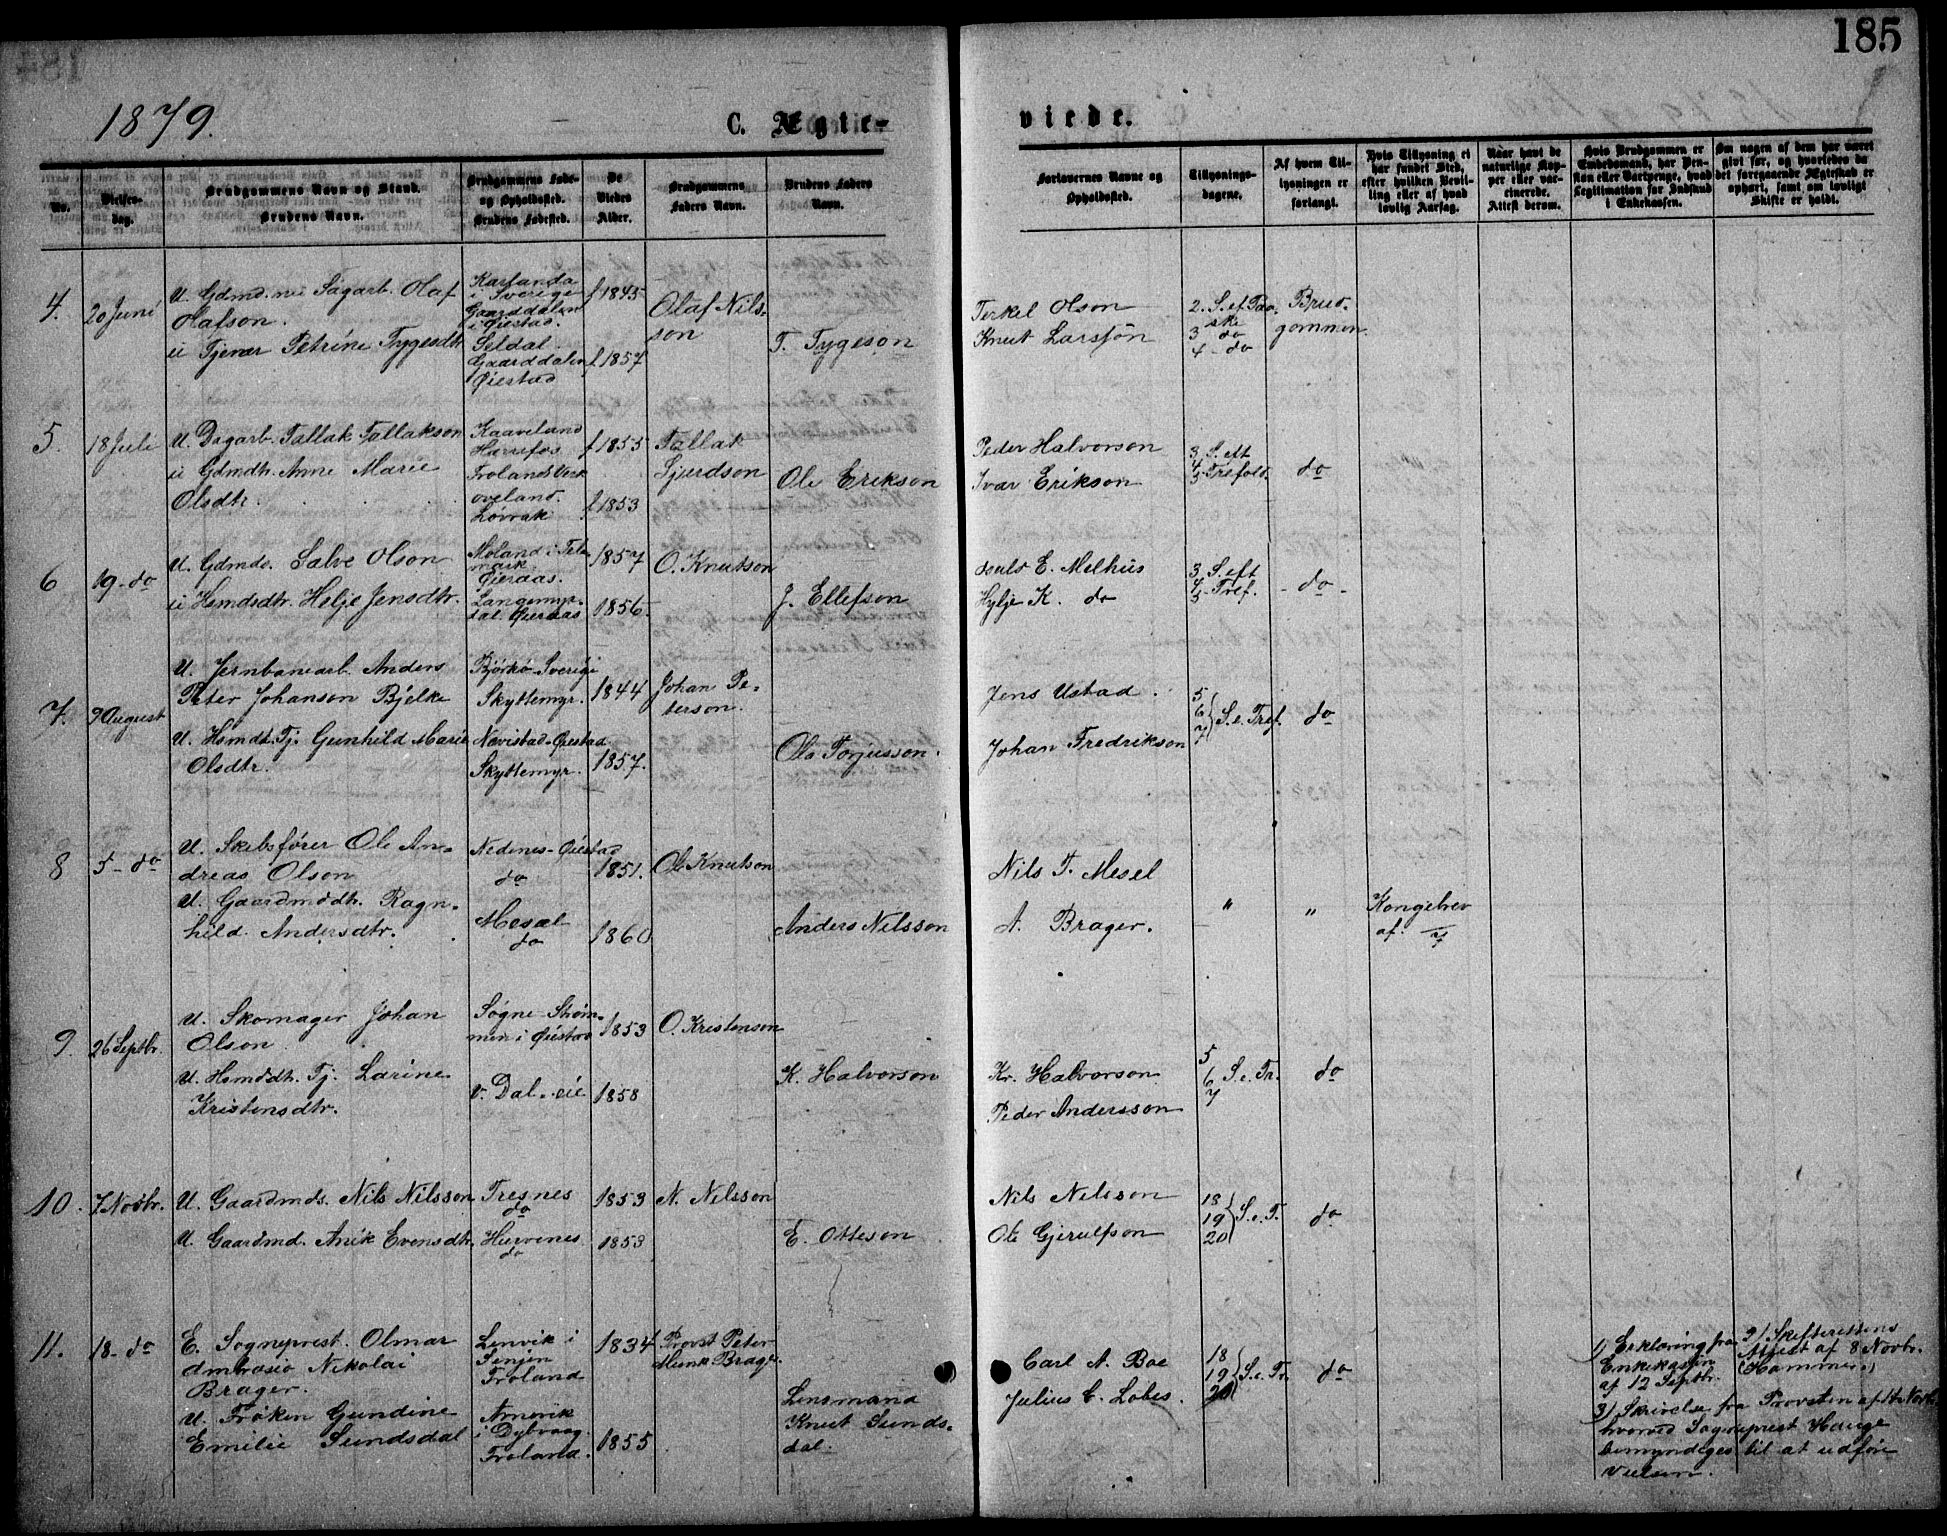 185
1879.
C. Ægte-
viede.
No.
Vielses-
dag.
Brudgommens Navn og Stand.
Brudens Navn.
Brudgommens Føde-
og Opholdssted.
Brudens Fødested.
De
Viedes
Alder.
Brudgommens
Faders Navn.
Brudens Faders
Navn.
Forlovernes Navne og
Opholdssted.
Tillysnings-
dagene.
Af hvem Til-
lysningen er
forlangt.
Hvis Tillysning ei
har fundet Sted,
efter hvilken Bevil-
ling eller af hvad
lovlig Aarsag.
Naar havt de
naturlige Kop-
per eller vac-
cinerede.
Attest derom.
Hvis Brudgommen er
Embedsmand, har Pen-
sion eller Vartpenge, hvad
Legitimation for Indskud
i Enkekassen.
Om nogen af dem har været
gift før, og hvorledes da
det foregaaende Ægteskab er
ophørt, samt om lovligt
Skifte er holdt.
4.
20 Juni
U. Gdmd. Sagarb. Olaf
Olafson.
u Tjener Petrine Tygesdtr.
Karlanda
i Sverige
Gaarddalen
i Øiestad.
Seldal.
Gaarddalen
Øiestad
f 1845
f 1857
Olaf Nils-
son
T. Tygeson
Terkel Olson
Knut Larsson
2. S. ef Paa-
ske
3 do
4 - do
Brud-
gommen.
5.
18 Juli
U. Dagarb. Tallak Tallakson
u Gdmdtr. Anne Marie
Olsdtr.
Kaaveland
Harrefos
Frolands Verk
oveland.
Løvrak
f 1855
f 1853
Tallak
Sjurdson
Ole Erikson
Peder Halvorson
Ivar Erikson
3. S. eft
4
5 Trefold.
do
6
19 - do
U. Gdmds. Salve Olson
u Hsmdsdtr. Helje Jensdtr.
Moland i Tele-
mark.
Øieraas.
Langemyr-
dal. Øieraas
1857
1856.
O. Knutson
J. Ellefson
E. Melhus
Hylje K. do
3. S. eft
4
5 Tref.
- do -
7.
9 August
U. Jernbanearb. Anders
Peter Johanson Bjelke
U. Hsmdt. Tj. Gunhild Marie
Olsdtr.
Bjørkø - Sverige
Skyttemyr.
Nævistad - Øiestad
Skyttemyr.
1844
1857.
Johan Pe-
terson.
Ole Torjusson.
Jens Ustad.
Johan Fredrikson
5
6 S. e. Tref.
7
do
8
5 - do
U. Skibsfører Ole An-
dreas Olson
U. Gaardmddtr. Ragn-
hild Andersdtr.
Nedenes - Øiestad
do
Mesel
do
1851.
1860
Ole Knutson
Anders Nilsson
Nils T. Mesel
A. Brager.
"
"
Kongebrev
af. 7
9.
26 Septbr.
U. Skomager Johan
Olson
U. Hsmddtr. Tj. Larine
Kristensdtr.
Søgne - Strøm-
men i Øiestad
v. Dal - eie
1853
1858
O. Kristenson
K. Halvorson
Kr. Halvorson
Peder Andersson
5
6 S. e. Tr.
7
do
10.
7 Novbr.
U. Gaardmds. Nils Nilsson
U. Gaardmd. Anik Evensdtr.
Tresnes
do
Hurvenes
do
1853
1853
N. Nilsson
E. Otteson
Nils Nilsson
Ole Gjerulfson
18
19 S. e. T.
20
do
11.
18 - do
E. Sogneprest Olmar
Ambrosio Nikolai
Brager.
U. Frøken Gundine
Emilie Sundsdal
Lenvik i
Senjen
Froland
Amevik
i Dybvaag.
Froland.
1834
1855.
Provst Peter
Munk Brager.
Lensmand
Knut Sunds-
dal.
Carl A. Boe
Julius C. Lobes.
18
19 S. e. Tr.
20
do
1) Erklæring fra
Enkekassen
af 12 Septbr.
2) Skifterettens
Attest af 8 Novbr.
(Hammer.)
3) Skrivelse fra Provsten af 14 Novb.
hvorved Sogneprest Hauge
bemyndiges til at udføre
Vielsen.